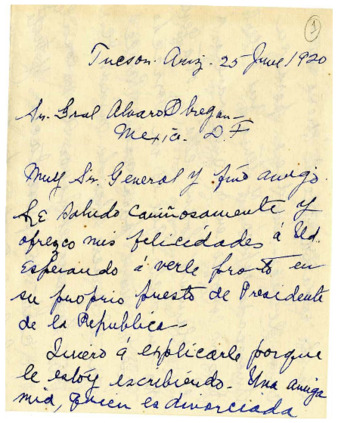 1
Tucson. Ariz. 25 June 1920
Sr. Gral Alvaro Obregon
Mexico. D F
Muy Sr. General y fino amigo.
Le saludo cariñosamente y
ofrezco mis felicidades á Ud.
Esperando á verle pronto en
su proprio puesto de Presidente
de la Republica—
Quiero á explicarle porque
le estoy escribiendo. Una amiga
mia, quien es divorciada